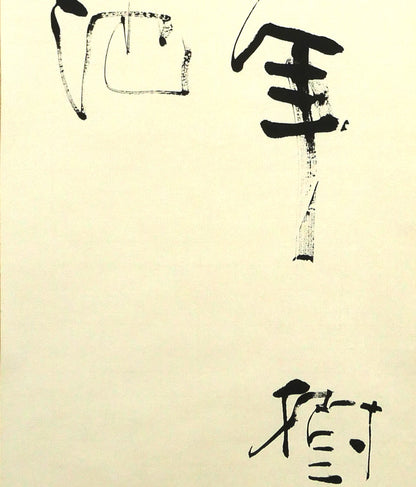 年樹
池